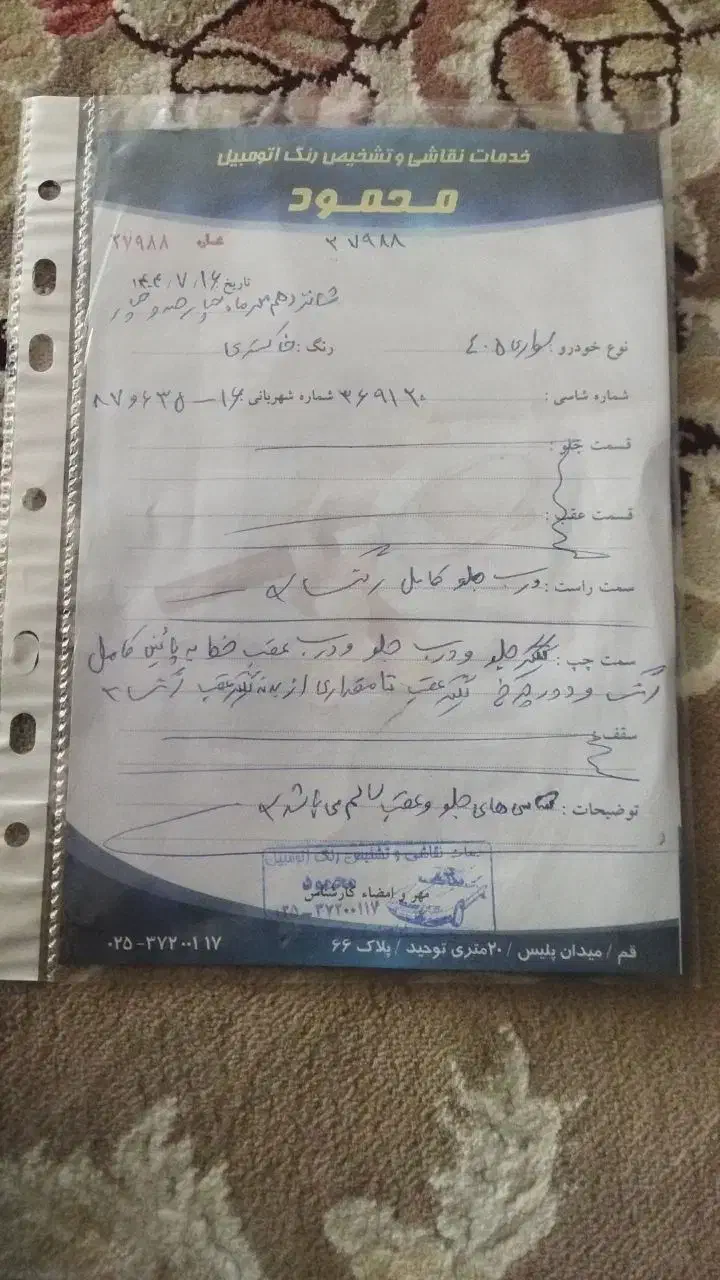 خدمات نقاشی و تشخیص رنگ اتومبیل
محمود
شماره ۲۷۹۸۸
۲۷۹۸۸
تاریخ ۱۴۰۴/۷/۱۶
شانزدهم مهر ماه چهارصد و چهار
نوع خودرو : سواری ۴۰۵ رنگ : خاکستری
شماره شاسی : ۳۶۹۱۲۰ شماره شهربانی : ۱۶ — ۸۷و۶۳۵
قسمت جلو :
قسمت عقب :
سمت راست : درب جلو کامل رنگ
سمت چپ : گلگیر جلو و درب جلو و درب عقب خط به پائین کامل
رنگ و دور چرخ گلگیر عقب تا مقداری از بدنه گلگیر عقب رنگ
سقف :
توضیحات : شاسی های جلو و عقب سالم می باشد
خدمات نقاشی و تشخیص رنگ اتومبیل
محمود
مهر و امضاء کارشناس
۰۲۵ - ۳۷۲۰۰۱۱۷
قم / میدان پلیس / ۲۰متری توحید / پلاک ۶۶ ۰۲۵-۳۷۲۰۰۱۱۷